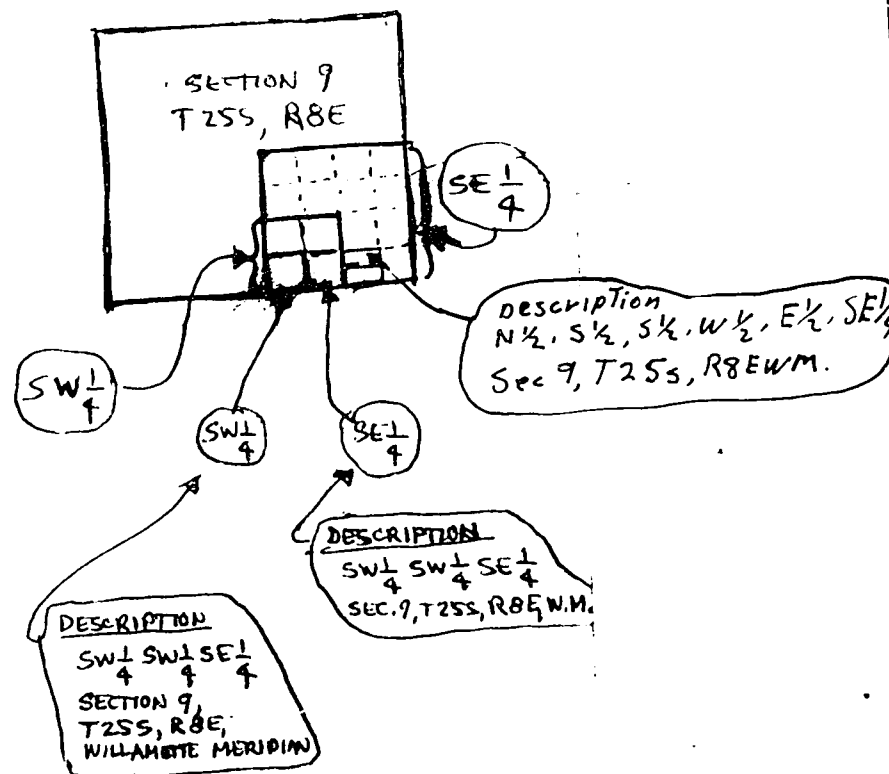 SECTION 9
T25S, R8E
SE 1/4
Description
N 1/2, S 1/2, S 1/2, W 1/2, E 1/2, SE 1/4
Sec 9, T25s, R8EWM.
SW 1/4
SW 1/4
SE 1/4
DESCRIPTION
SW 1/4 SW 1/4 SE 1/4
SEC. 9, T25S, R8E, W.M.
DESCRIPTION
SW 1/4 SW 1/4 SE 1/4
SECTION 9,
T25S, R8E,
WILLAMETTE MERIDIAN